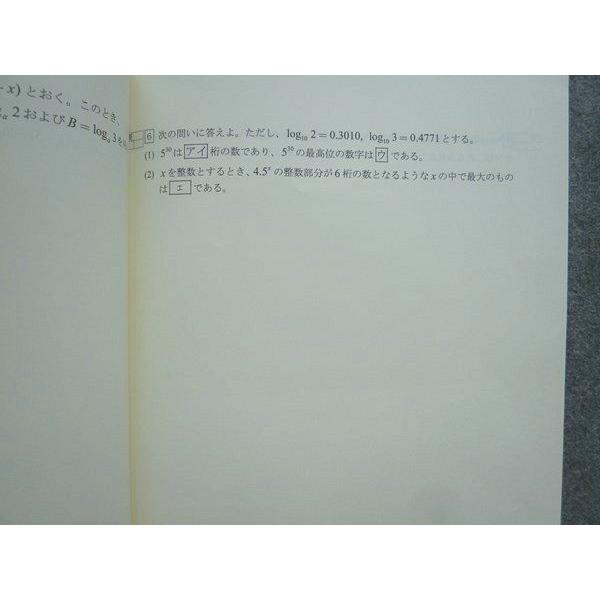 x) とおく。このとき、
2およびB=log_a 3を
6 次の問いに答えよ。ただし、log₁₀ 2=0.3010, log₁₀ 3=0.4771とする。
(1) 5³⁰はアイ桁の数であり、5³⁰の最高位の数字はウである。
(2) xを整数とするとき、4.5ˣの整数部分が6桁の数となるようなxの中で最大のもの
はエである。